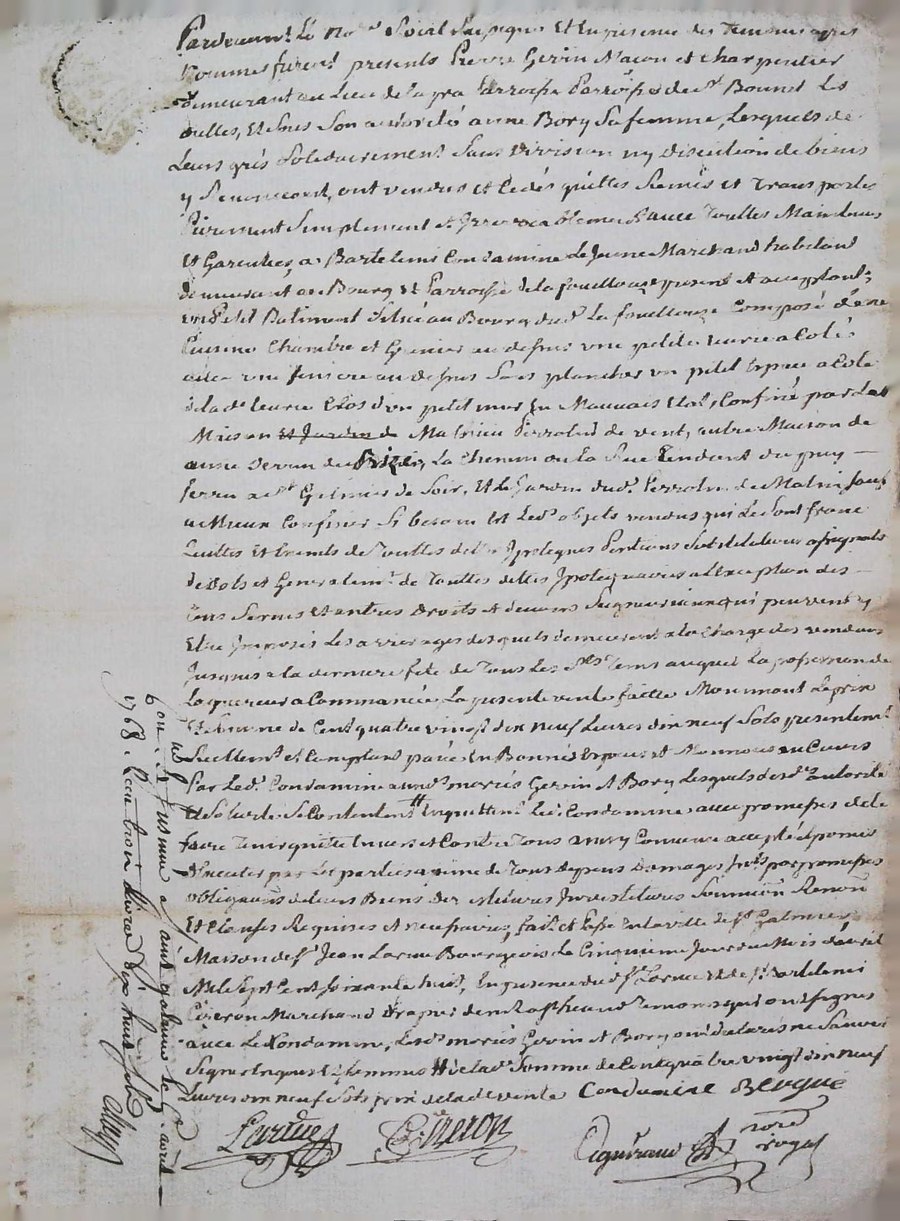 Pardevant Le No.re Roial Soussigné Et En presence des Temoins apres
Nommés furent presents Pierre Gerin Maçon et charpentier
demeurant au Lieu de la Parroisse de St Bonnet Les
oulles, Et sous son authorité anne Bory Sa femme, Lesquels de
Leurs grés Solidairement Sans Division ny Discution de biens
y Renoncent, ont vendus et Cedés quittés Remis et Transportés
Purement Simplement et Irrevocablement avec Toutes Maintenues
Et Garenties, a Bartelemi Condamine Le Jeune Marchand habitant
demeurant au Bourg Et Parroisse de la fouillouse present et acceptant
un Petit Batiment Situé au Bourg dud. La fouillouse Composé d'une
Cuisine Chambre et Grenier au dessus une petite ecurie a Coté
avec une feniere au dessus Sans plancher un petit Espace a Coté
de lad. ecurie Clos d'un petit mur En Mauvais Etat, Confiné par La
Maison et Jardin de Mathieu Perrolin de vent, autre Maison de
anne Servan de Bize, Le Chemin ou La Rue Tendant du puy
ferra a St Galmier de Soir, Et Le Jardin dud. Perrolin de Matin Sauf
a Mieux Confiner Si besoin Est Lesd. objets vendus quils de Sont franc
quittes Et Exempts de Touttes dettes Ipoteques Pentions Substitutions assignats
de Dots et Generalemt. de Touttes dettes Ipotequaires a l'Exception des
Cens Servis Et autres Droits et devoirs Seigneuriaux qui peuvent y
Etre Imposés Les arrerages desquels demeurent a la Charge des vendeurs
Jusques a la derniere fete de Tous Les Sts Tems auquel La possession de
Lacquereur a Commancée, La presente vente faitte Moyennant Le prix
Et Somme de Cent quatre vingt dix neuf Livres dix neuf Sols presentemt.
Reellemt. et Comptant payés En Bonnes Especes et Monnoies au Cours
Par Led. Condamine auxd. mariés Gerin et Bory Lesquels de sd. autorité
et Solid. Se Contentent # En quittent Led. Condamine avec promesses de Le
faire Tenir quitte Envers et Contre Tous ainsy Convenu accepté et promis
d'Executer par Les parties a peine de Tous depens Domages Int.ts par promesses
obligations de Leurs Biens devestitures Investitures Soumi.on Renon.on
Et Clauses Requises et necessaires, fait et Passé En la ville de St Galmier
Maison de sr. Jean Larue Bourgeois Le Cinquieme Jour du Mois d'avril
Mil Sept Cent soixante huit, En presence dud. Sr Larue Et de Sr Bartelemi
Cizeron Marchand Drapier dem.t a St heand Temoins qui ont Signés
avec Led. Condamine, Lesd. mariés Gerin et Bory ont declarés ne Savoir
Signer Enquis Et Sommés # de Lad. Somme de Cent quatre vingt dix neuf
Livres dix neuf Sols prix de lad. vente Condamine
Larüe Cizeron nore royal
Con.lé Et Insinué a Saint galmier Le 5 avril
1768. Reçu trois Livres dix huit sols